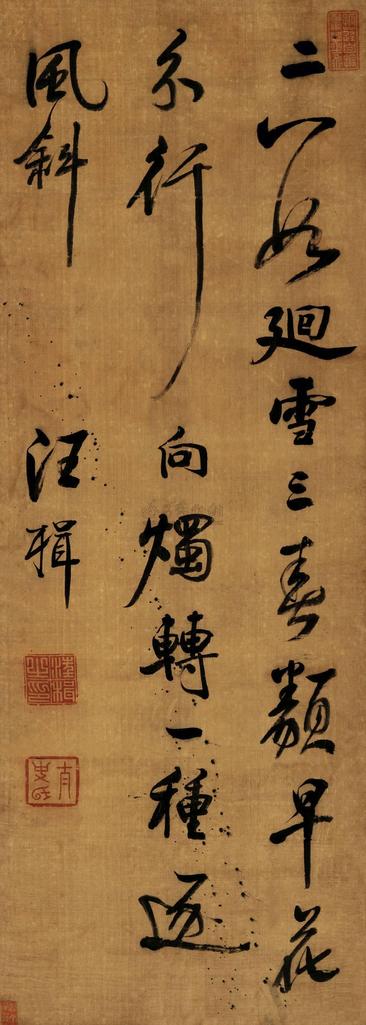 二八如迴雪三春類早花
分行向燭轉一種逐
風斜
汪楫
汪楫之印